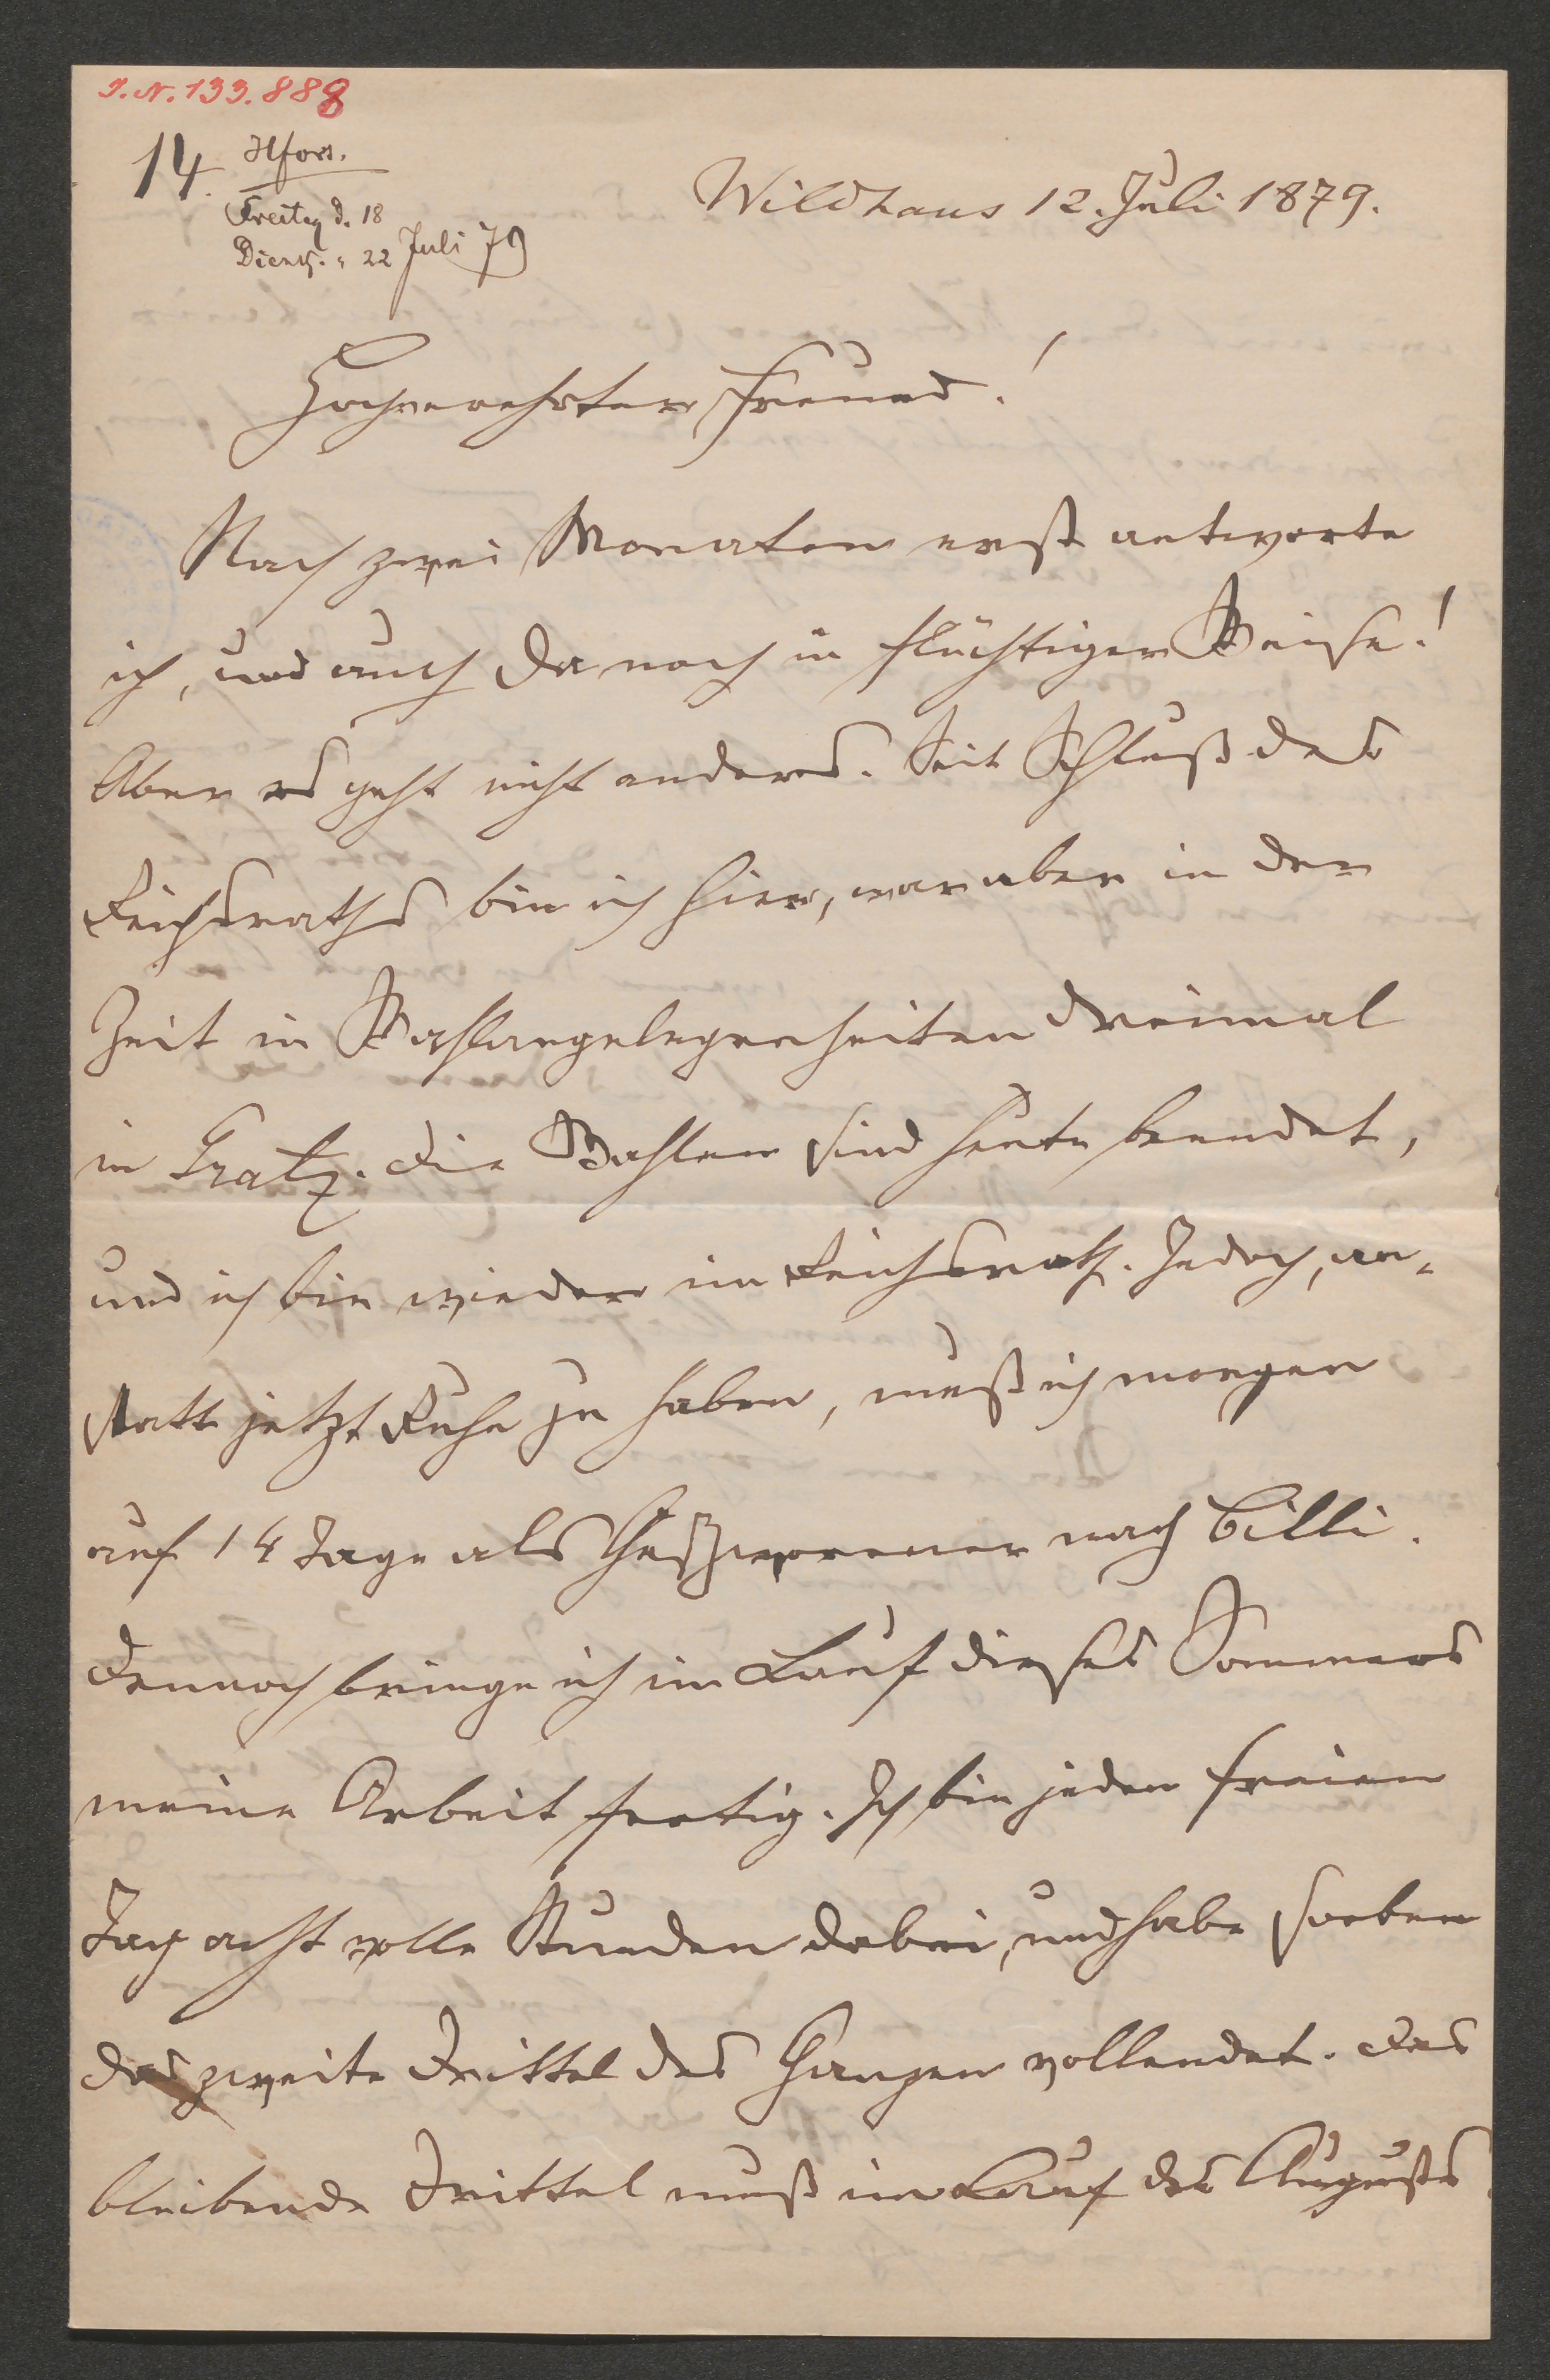 I.N. 133.888
14.
Freitag d. 18
Dienst. " 22 Juli 79
Wildhaus 12. Juli 1879.
Hochverehrter Freund!
Nach zwei Monaten erst antworte
ich, und auch da noch in flüchtiger Weise!
Aber es geht nicht anders. Seit Schluß des
Reichsraths bin ich hier, war aber in der
Zeit in Wahlangelegenheiten dreimal
in Gratz. Die Wahlen sind heute beendet,
und ich bin wieder im Reichsrath. Jedoch, an-
statt jetzt Ruhe zu haben, muß ich morgen
auf 14 Tage als Geschworener nach Cilli.
Dennoch bringe ich im Lauf dieses Sommers
meine Arbeit fertig. Ich bin jeden freien
Tag acht volle Stunden dabei, und habe soeben
das zweite Drittel des Ganzen vollendet. Das
bleibende Drittel muß im Lauf des Augusts